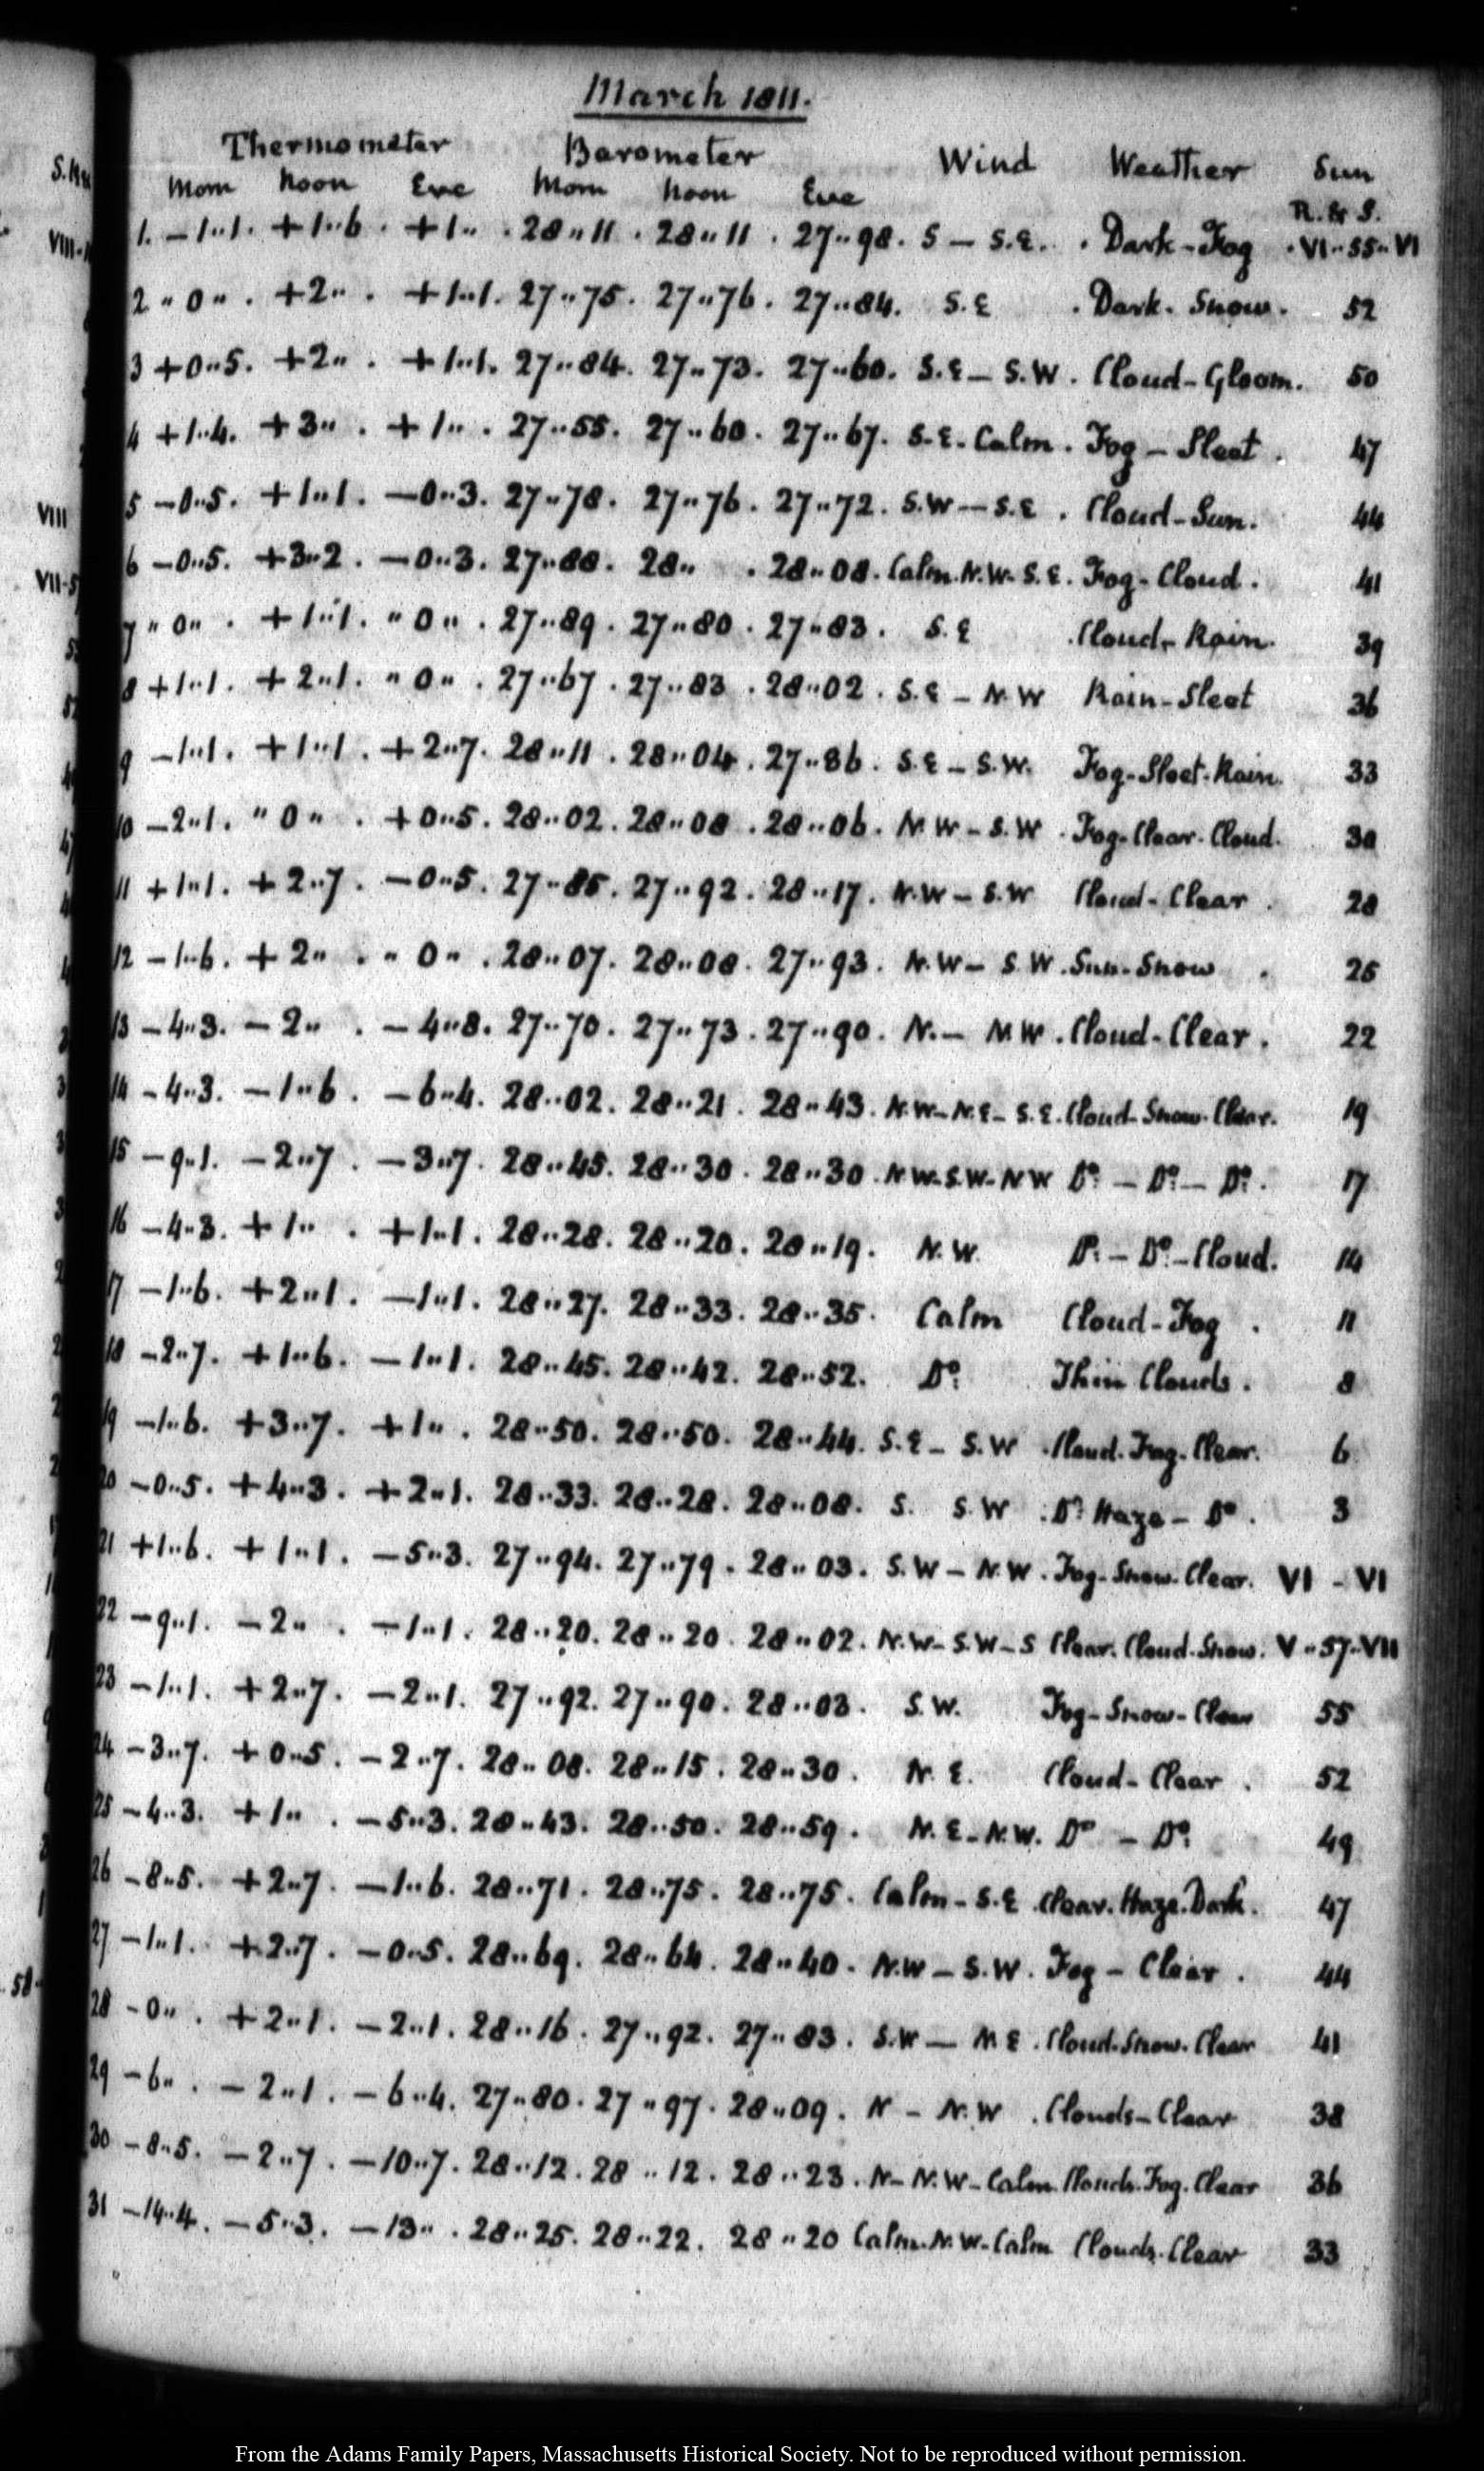 March 1811.
Thermometer Barometer Wind Weather Sun
Morn Noon Eve Morn Noon Eve R. & S.
1. −1..1. +1..6. +1.. . 28..11. 28..11. 27..98. S — S.E. . Dark-Fog . VI..55..VI
2 " 0 " . +2.. . +1..1. 27..75. 27..76. 27..84. S.E . Dark. Snow. 52
3 +0..5. +2.. . +1..1. 27..84. 27..73. 27..60. S.E — S.W. Cloud-Gloom. 50
4 +1..4. +3.. . +1.. . 27..55. 27..60. 27..67. S.E. Calm. Fog — Sleet. 47
5 −0..5. +1..1. −0..3. 27..78. 27..76. 27..72. S.W — S.E. Cloud-Sun. 44
6 −0..5. +3..2. −0..3. 27..88. 28.. . 28..08. Calm. N.W. S.E. Fog-Cloud. 41
7 " 0 " . +1..1. " 0 " . 27..89. 27..80. 27..83. S.E . Cloud-Rain. 39
8 +1..1. +2..1. " 0 " . 27..67. 27..83. 28..02. S.E — N.W Rain-Sleet 36
9 −1..1. +1..1. +2..7. 28..11. 28..04. 27..86. S.E — S.W. Fog-Sleet-Rain. 33
10 −2..1. " 0 " . +0..5. 28..02. 28..08. 28..06. N W — S.W. Fog-Clear-Cloud. 30
11 +1..1. +2..7. −0..5. 27..85. 27..92. 28..17. N.W — S.W Cloud-Clear. 28
12 −1..6. +2.. . " 0 " . 28..07. 28..08. 27..93. N.W — S.W. Sun-Snow . 25
13 −4..3. −2.. . −4..8. 27..70. 27..73. 27..90. N. — N W. Cloud-Clear. 22
14 −4..3. −1..6. −6..4. 28..02. 28..21. 28..43. N.W — N.E — S.E. Cloud-Snow-Clear. 19
15 −9..1. −2..7. −3..7. 28..45. 28..30. 28..30. N W-S.W-N W Do. — Do. — Do. 17
16 −4..3. +1.. . +1..1. 28..28. 28..20. 28..19. N.W. Do. — Do. — Cloud. 14
17 −1..6. +2..1. −1..1. 28..27. 28..33. 28..35. Calm Cloud-Fog . 11
18 −2..7. +1..6. −1..1. 28..45. 28..42. 28..52. Do. Thin Clouds. 8
19 −1..6. +3..7. +1.. . 28..50. 28..50. 28..44. S.E — S.W . Cloud. Fog. Clear. 6
20 −0..5. +4..3. +2..1. 28..33. 28..28. 28..08. S. S.W . Do. Haze — Do. 3
21 +1..6. +1..1. −5..3. 27..94. 27..79. 28..03. S.W — N.W. Fog-Snow-Clear. VI - VI
22 −9..1. −2.. . −1..1. 28..20. 28..20. 28..02. N.W — S.W — S Clear. Cloud. Snow. V..57..VII
23 −1..1. +2..7. −2..1. 27..92. 27..90. 28..03. S.W. Fog-Snow-Clear 55
24 −3..7. +0..5. −2..7. 28..08. 28..15. 28..30. N.E. Cloud-Clear . 52
25 −4..3. +1.. . −5..3. 28..43. 28..50. 28..59. N.E — N.W. Do — Do. 49
26 −8..5. +2..7. −1..6. 28..71. 28..75. 28..75. Calm — S.E . Clear. Haze. Dark. 47
27 −1..1. +2..7. −0..5. 28..69. 28..64. 28..40. N.W — S.W. Fog — Clear. 44
28 −0.. . +2..1. −2..1. 28..16. 27..92. 27..83. S.W — N E. Cloud. Snow. Clear 41
29 −6.. . −2..1. −6..4. 27..80. 27..97. 28..09. N — N.W . Clouds-Clear 38
30 −8..5. −2..7. −10..7. 28..12. 28..12. 28..23. N — N.W — Calm. Clouds. Fog. Clear 36
31 −14..4. −5..3. −13.. . 28..25. 28..22. 28..20 Calm. N.W. Calm Clouds. Clear 33
From the Adams Family Papers, Massachusetts Historical Society. Not to be reproduced without permission.